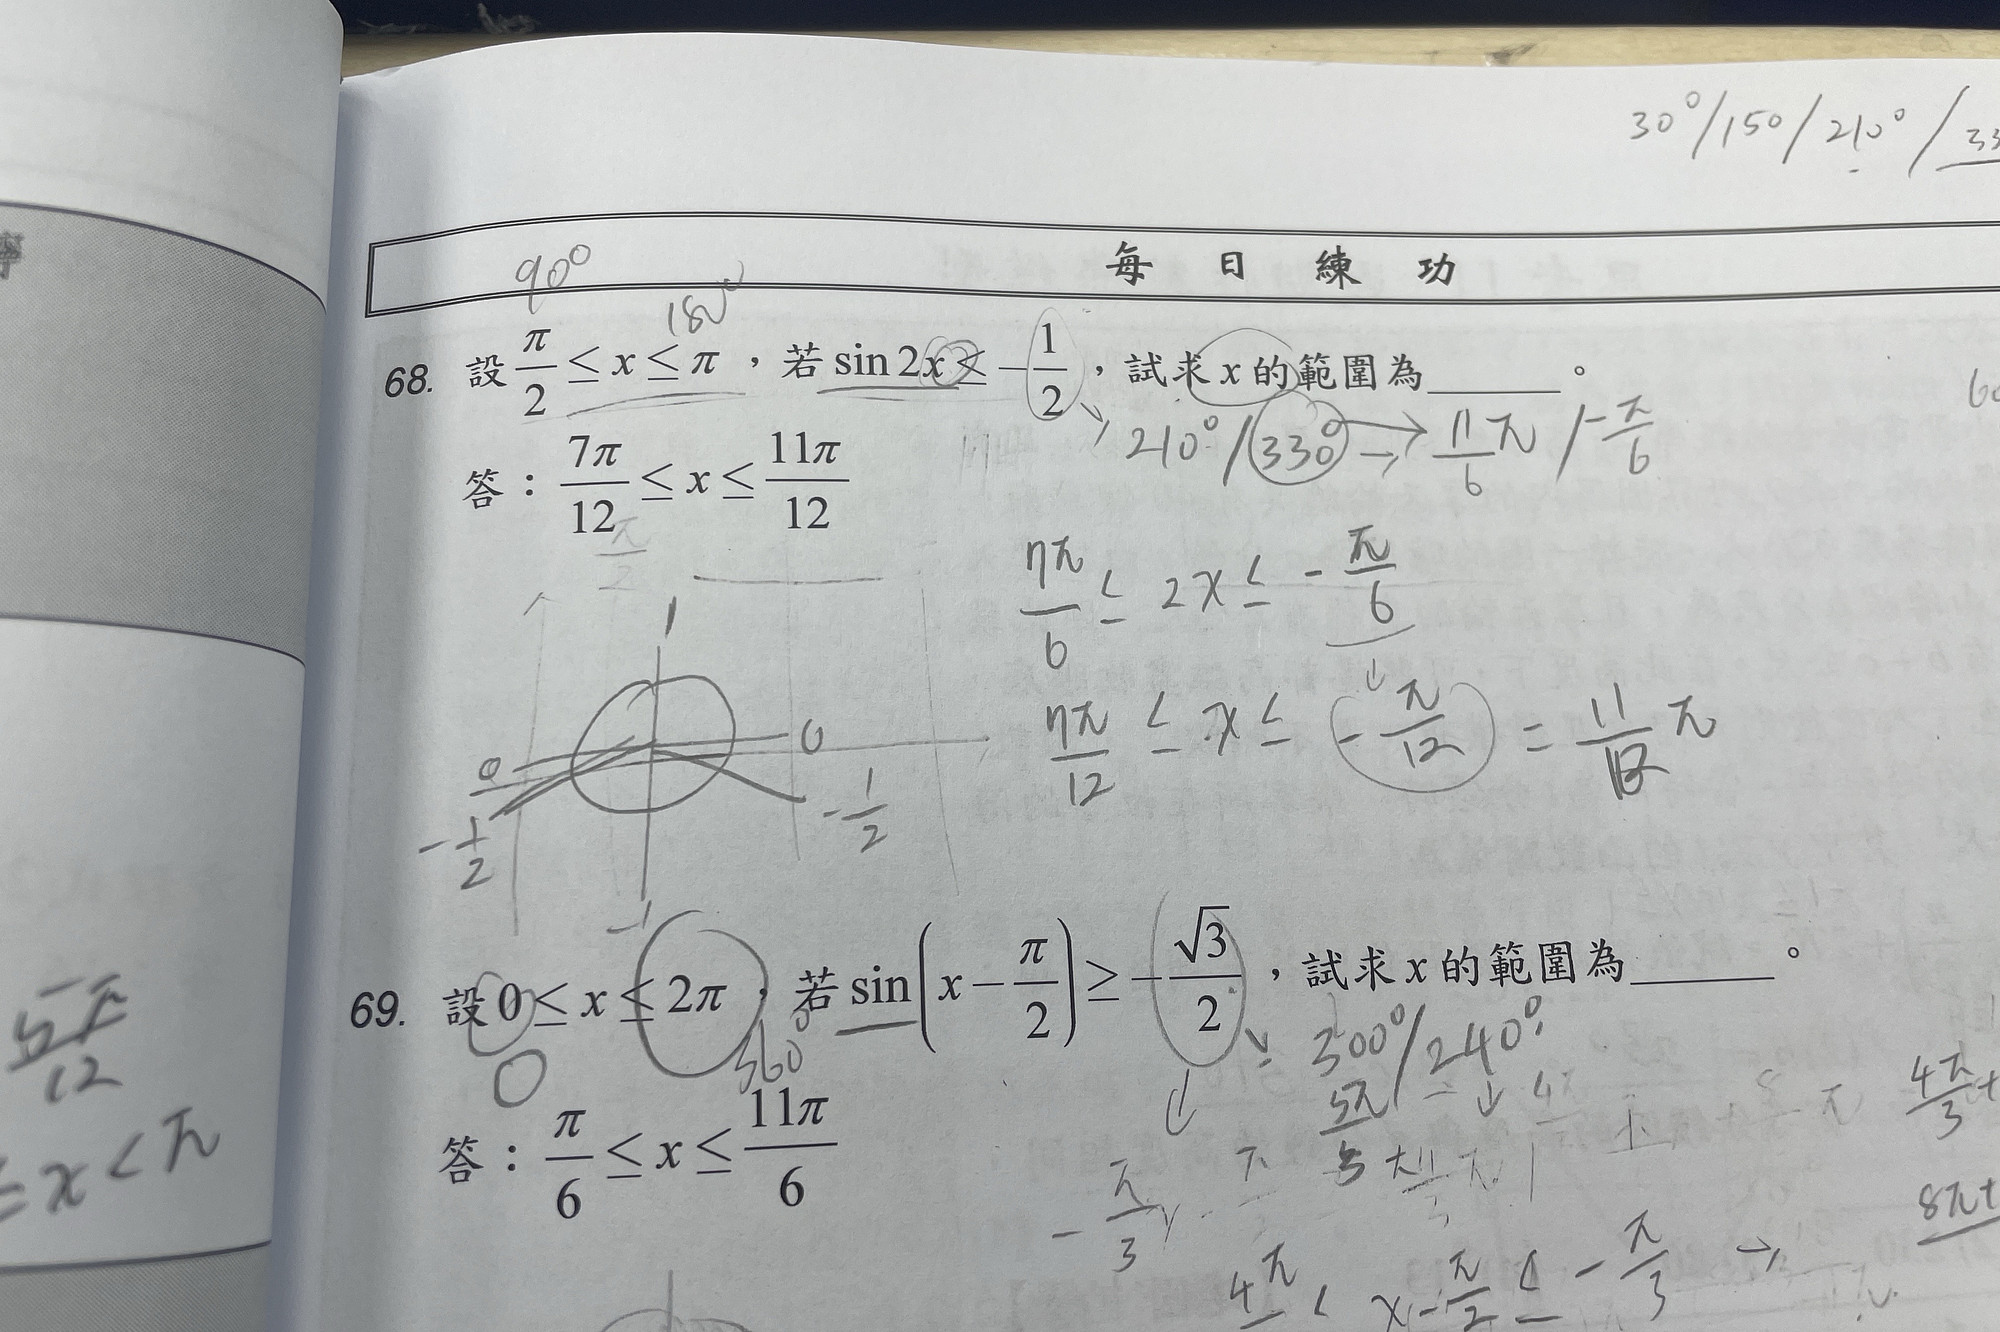 30°/150/210°/33
每日練功
90°
180°
68. 設 π/2 ≤ x ≤ π，若 sin 2x ≤ -1/2，試求 x 的範圍為______。
210°/330° → 11/6 π / -π/6
答：7π/12 ≤ x ≤ 11π/12
π/2
7π/6 ≤ 2x ≤ -π/6
1
7π/12 ≤ x ≤ -π/12 = 11/12 π
0 0
-1/2 -1/2
-1
69. 設 0 ≤ x ≤ 2π，若 sin(x - π/2) ≥ -√3/2，試求 x 的範圍為______。
0 360°
300°/240°
5π/3
4π/3 +
答：π/6 ≤ x ≤ 11π/6
-π/3
8π+
4π ≤ x - π/2 ≤ -π/3 →
5π/12
= x < π